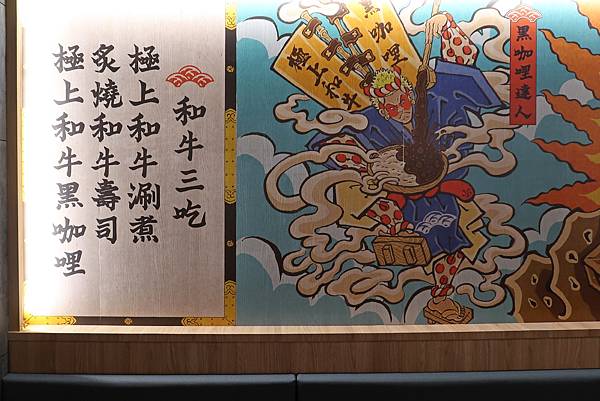 和牛三吃
極上和牛涮煮
炙燒和牛壽司
極上和牛黑咖哩
黑咖哩達人
黑咖哩
極上和牛